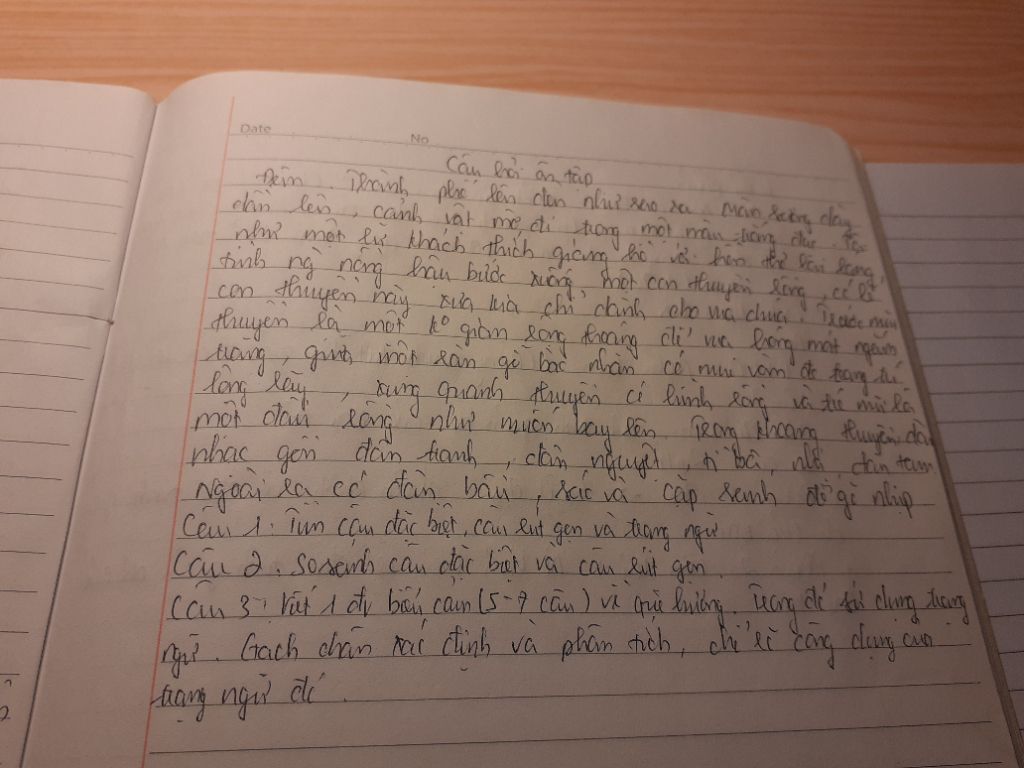 Date No
Câu hỏi ôn tập
Đêm. Thành phố lên đèn như sao sa. Màn sương dày
dần lên, cảnh vật mờ đi trong một màu trắng đục. Tôi
như một lữ khách thích giang hồ với hồn thơ lai láng,
tình người nồng hậu bước xuống một con thuyền rồng, có lẽ
con thuyền này xưa kia chỉ dành cho vua chúa. Trước mũi
thuyền là một không gian rộng thoáng để vua hóng mát ngắm
trăng, giữa một sàn gỗ bào nhẵn có mui vòm được trang trí
lộng lẫy, xung quanh thuyền có hình rồng và trước mũi là
một đầu rồng như muốn bay lên. Trong khoang thuyền, dàn
nhạc gồm đàn tranh, đàn nguyệt, tì bà, nhị, đàn tam
Ngoài ra có đàn bầu, sáo và cặp sanh để gõ nhịp
Câu 1: Tìm câu đặc biệt, câu rút gọn và trạng ngữ
Câu 2: So sánh câu đặc biệt và câu rút gọn.
Câu 3: Viết 1 đv biểu cảm (5-7 câu) về quê hương. Trong đó sử dụng trạng
ngữ. Gạch chân xác định và phân tích, chỉ rõ công dụng của
trạng ngữ đó.